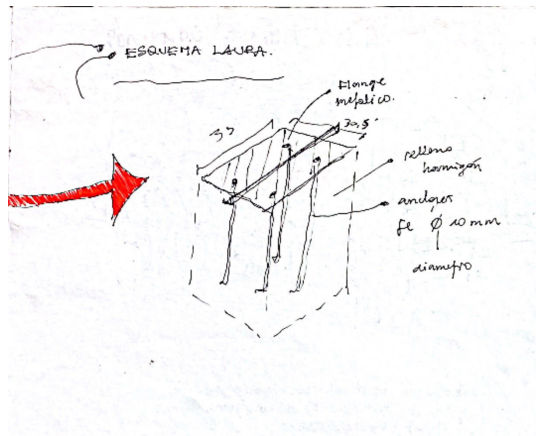 ESQUEMA LAURA.
Flange
metalico.
30,5
relleno
hormigón
anclajes
fe Ø 10 mm
diametro